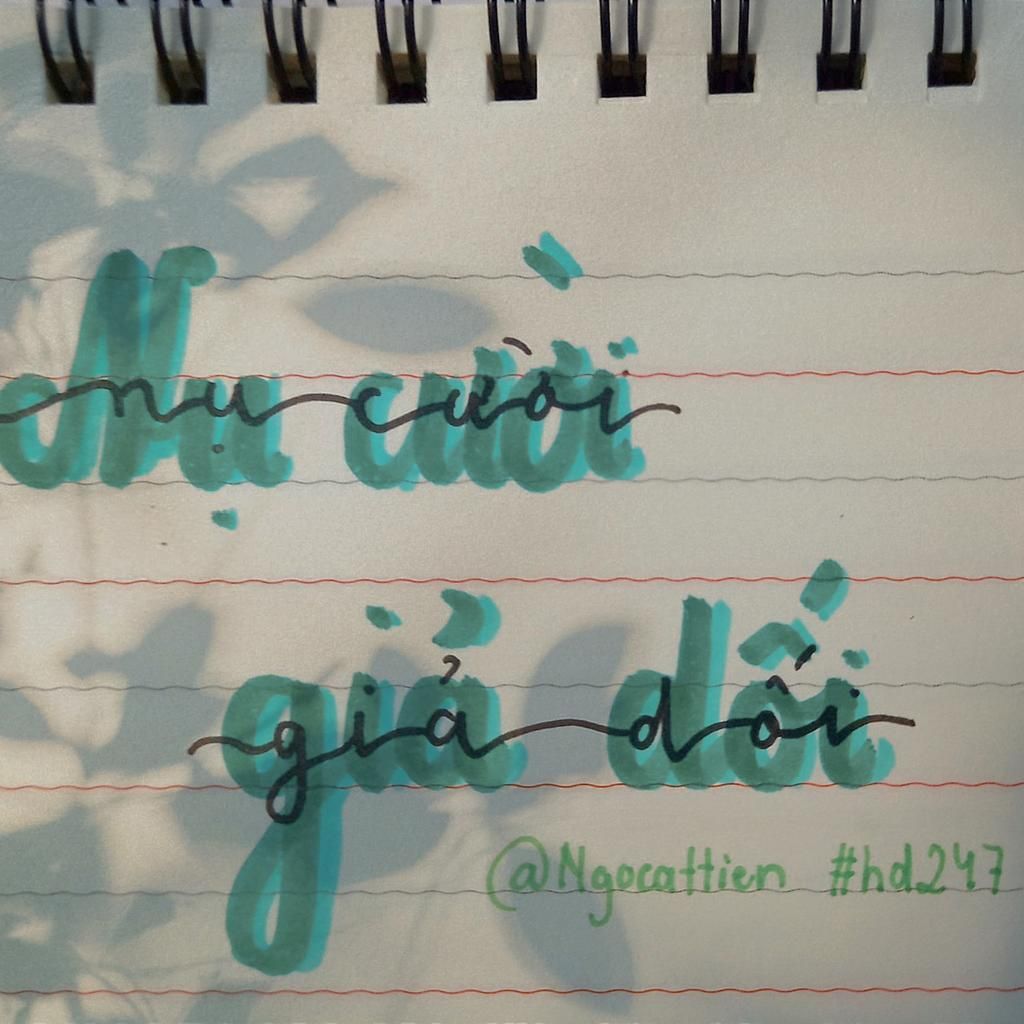 Nụ cười
giả dối
@Ngocattien #hd247